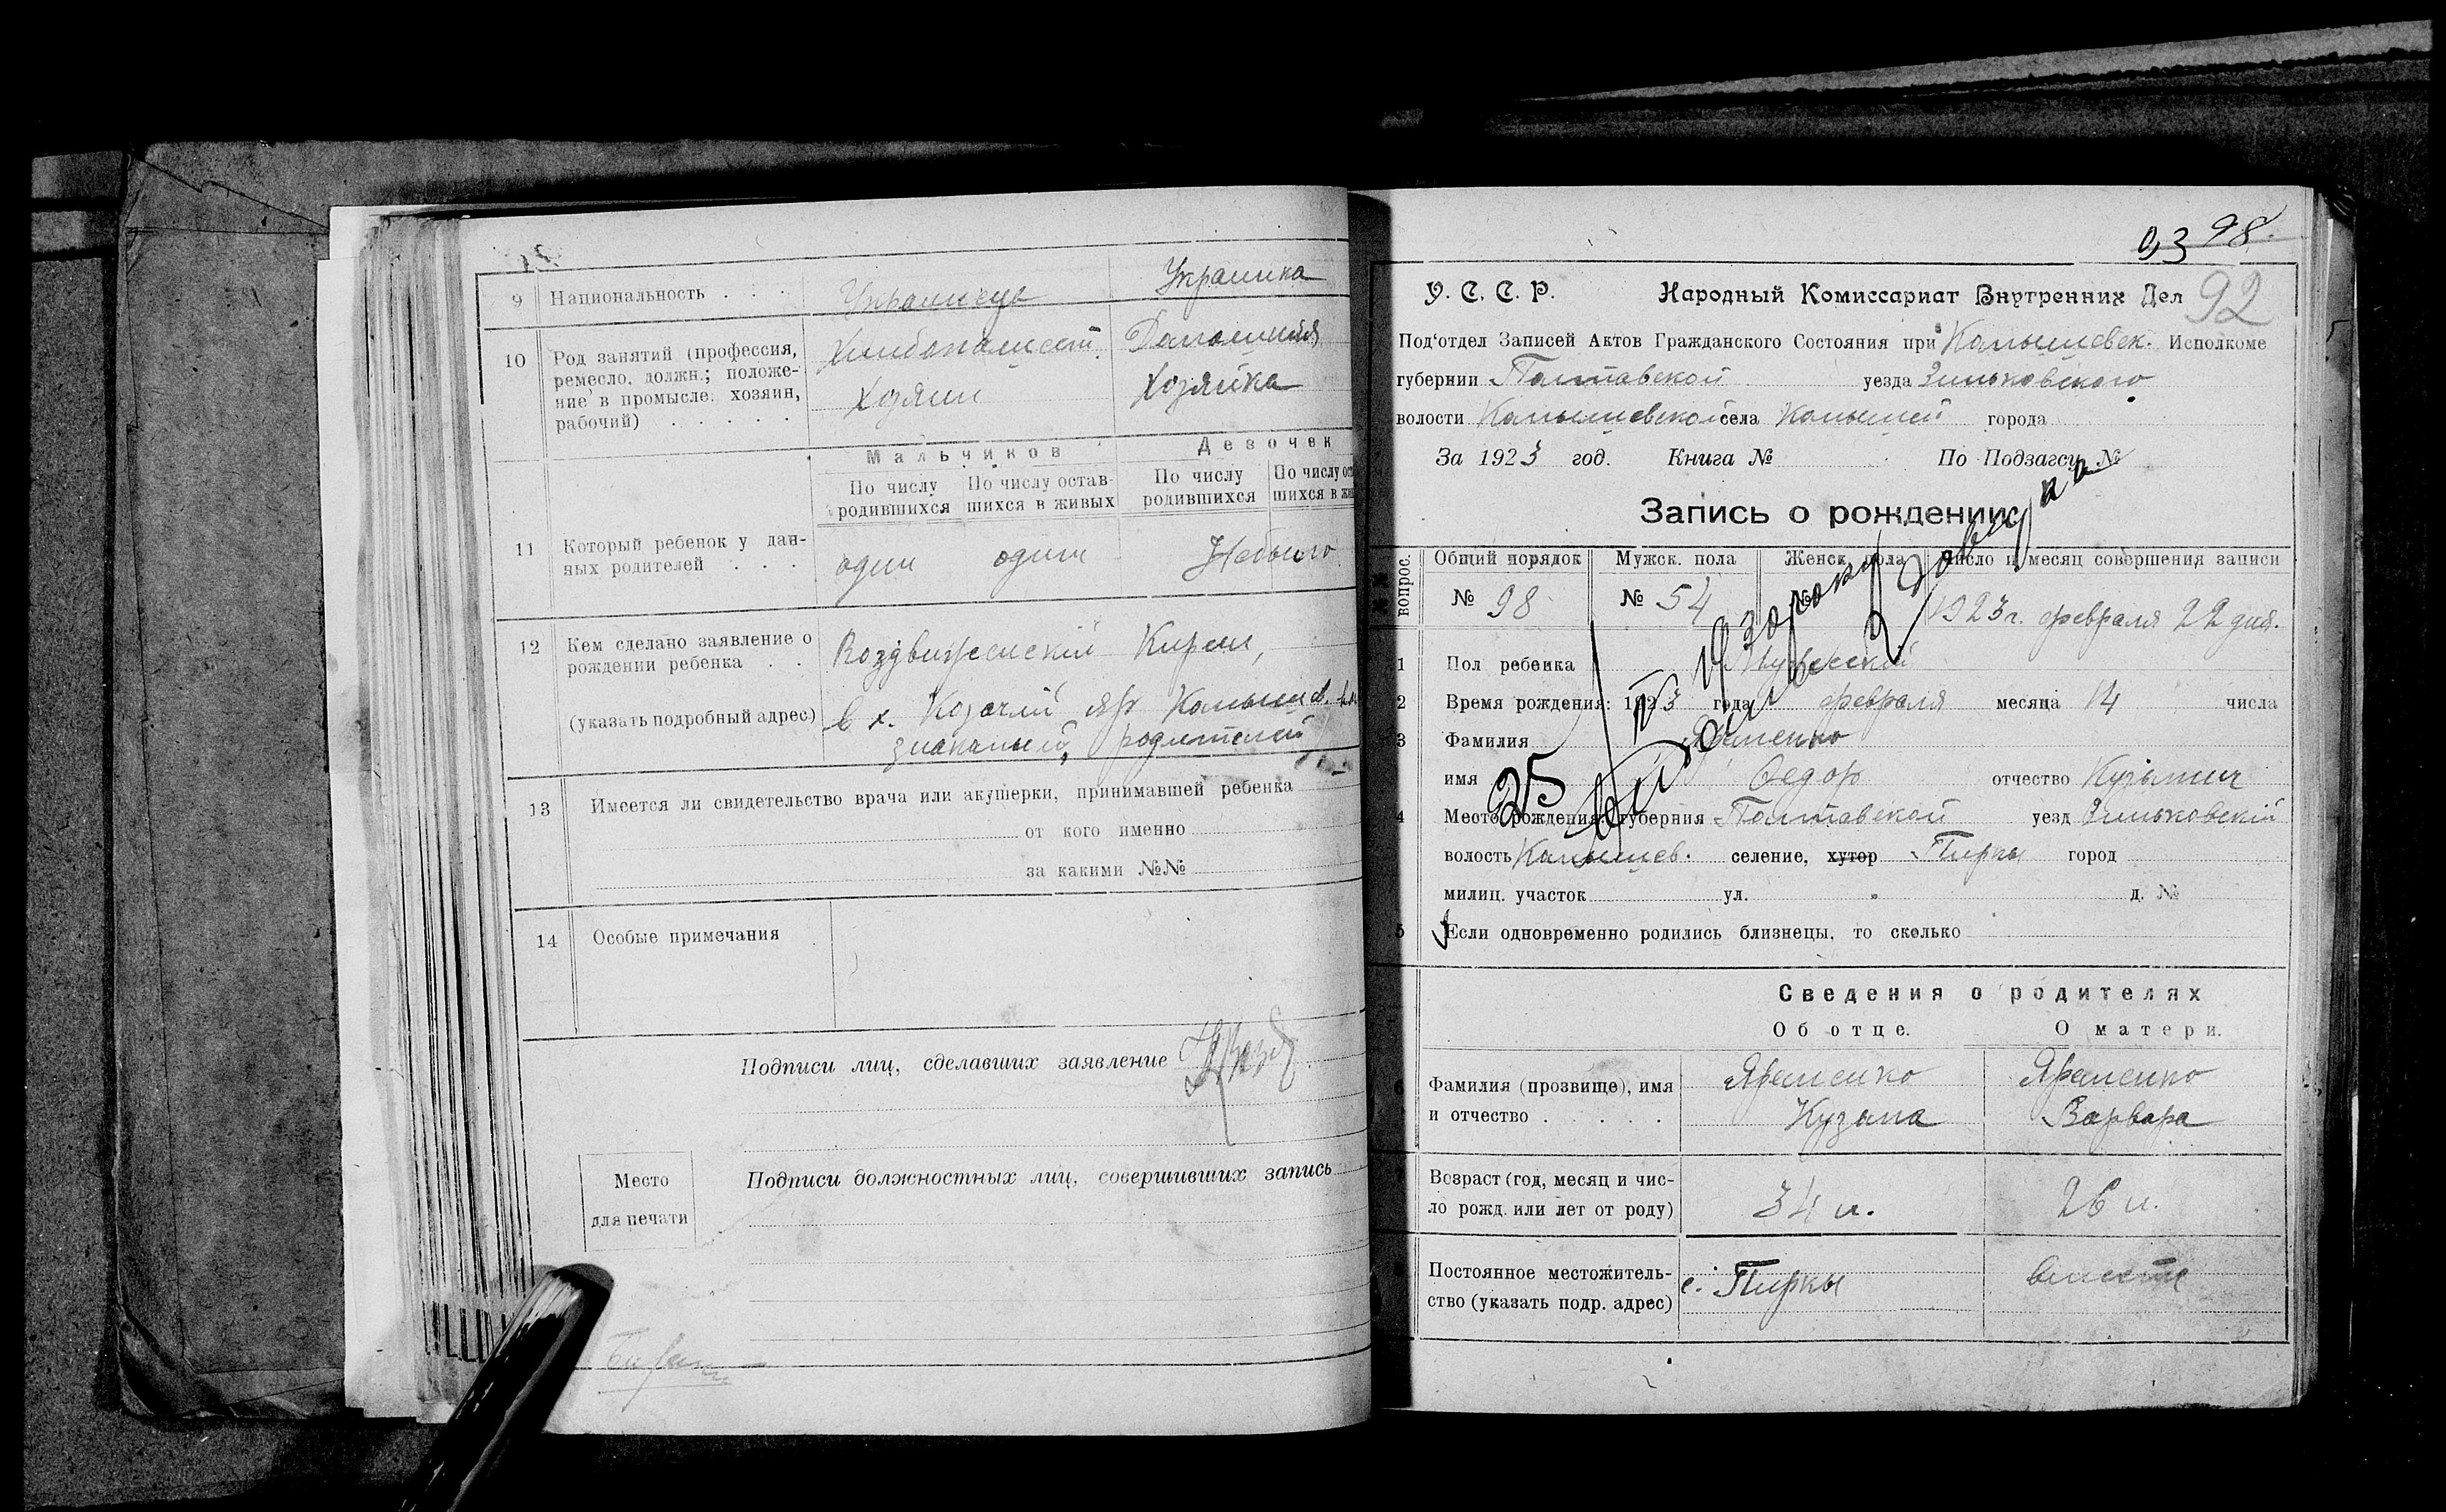 9 Национальность . . . Украинець Украинка
10 Род занятий (профессия, Хлибопашест. Домашняя
ремесло, должн.; положе-
ние в промысле. хозяин, хозяин хозяйка
рабочий) . . . . .
Мальчиков Девочек
По числу По числу остав- По числу По числу ос
родившихся шихся в живых родившихся шихся в жи
11 Который ребенок у дан-
ных родителей . . . один один Небыло
12 Кем сделано заявление о
рождении ребенка . . Воздвиженскій Кирил,
(указать подробный адрес) в х. Козачій яр Камышев.
родителей
13 Имеется ли свидетельство врача или акушерки, принимавшей ребенка
от кого именно
за какими №№
14 Особые примечания
Подписи лиц, сделавших заявление
Место
для печати
Подписи должностных лиц, совершивших запись
93 98
У. С. С. Р. Народный Комиссариат Внутренних Дел 92
Под'отдел Записей Актов Гражданского Состояния при Камышевск. Исполкоме
губернии Полтавской уезда Зиньковского
волости Камышевской села Камышей города
За 1923 год. Книга № По Подзагсу №
Запись о рождении
№№ вопрос. Общий порядок Мужск. пола Женск. пола Число и месяц совершения записи
№ 98 № 54 № 1923 г. февраля 22 дня.
1 Пол ребенка Мужеский
2 Время рождения: 1923 года февраля месяца 14 числа
3 Фамилия Яременко
имя Федор отчество Кузьмич
4 Место рождения: губерния Полтавской уезд Зиньковскій
волость Камышев. селение, хутор Пирки город
милиц. участок ул. д. №
5 Если одновременно родились близнецы, то сколько
25
Сведения о родителях
Об отце. О матери.
6 Фамилия (прозвище), имя Яременко Яременко
и отчество . . . . . Кузьма Варвара
Возраст (год, месяц и чис-
ло рожд. или лет от роду) 34 л. 26 л.
Постоянное местожитель-
ство (указать подр. адрес) с. Пирки вместе